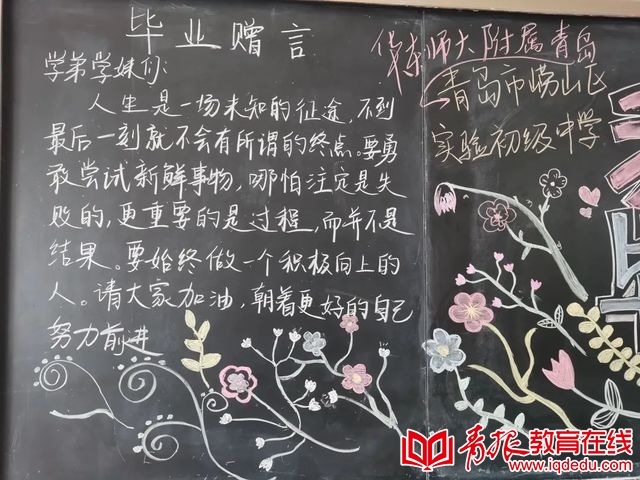 毕业赠言
学弟学妹们:
人生是一场未知的征途,不到
最后一刻就不会有所谓的终点。要勇
敢尝试新鲜事物,哪怕注定是失
败的,更重要的是过程,而并不是
结果。要始终做一个积极向上的
人。请大家加油,朝着更好的自己
努力前进
华东师大附属青岛
青岛市崂山区
实验初级中学
青报教育在线
www.iqdedu.com